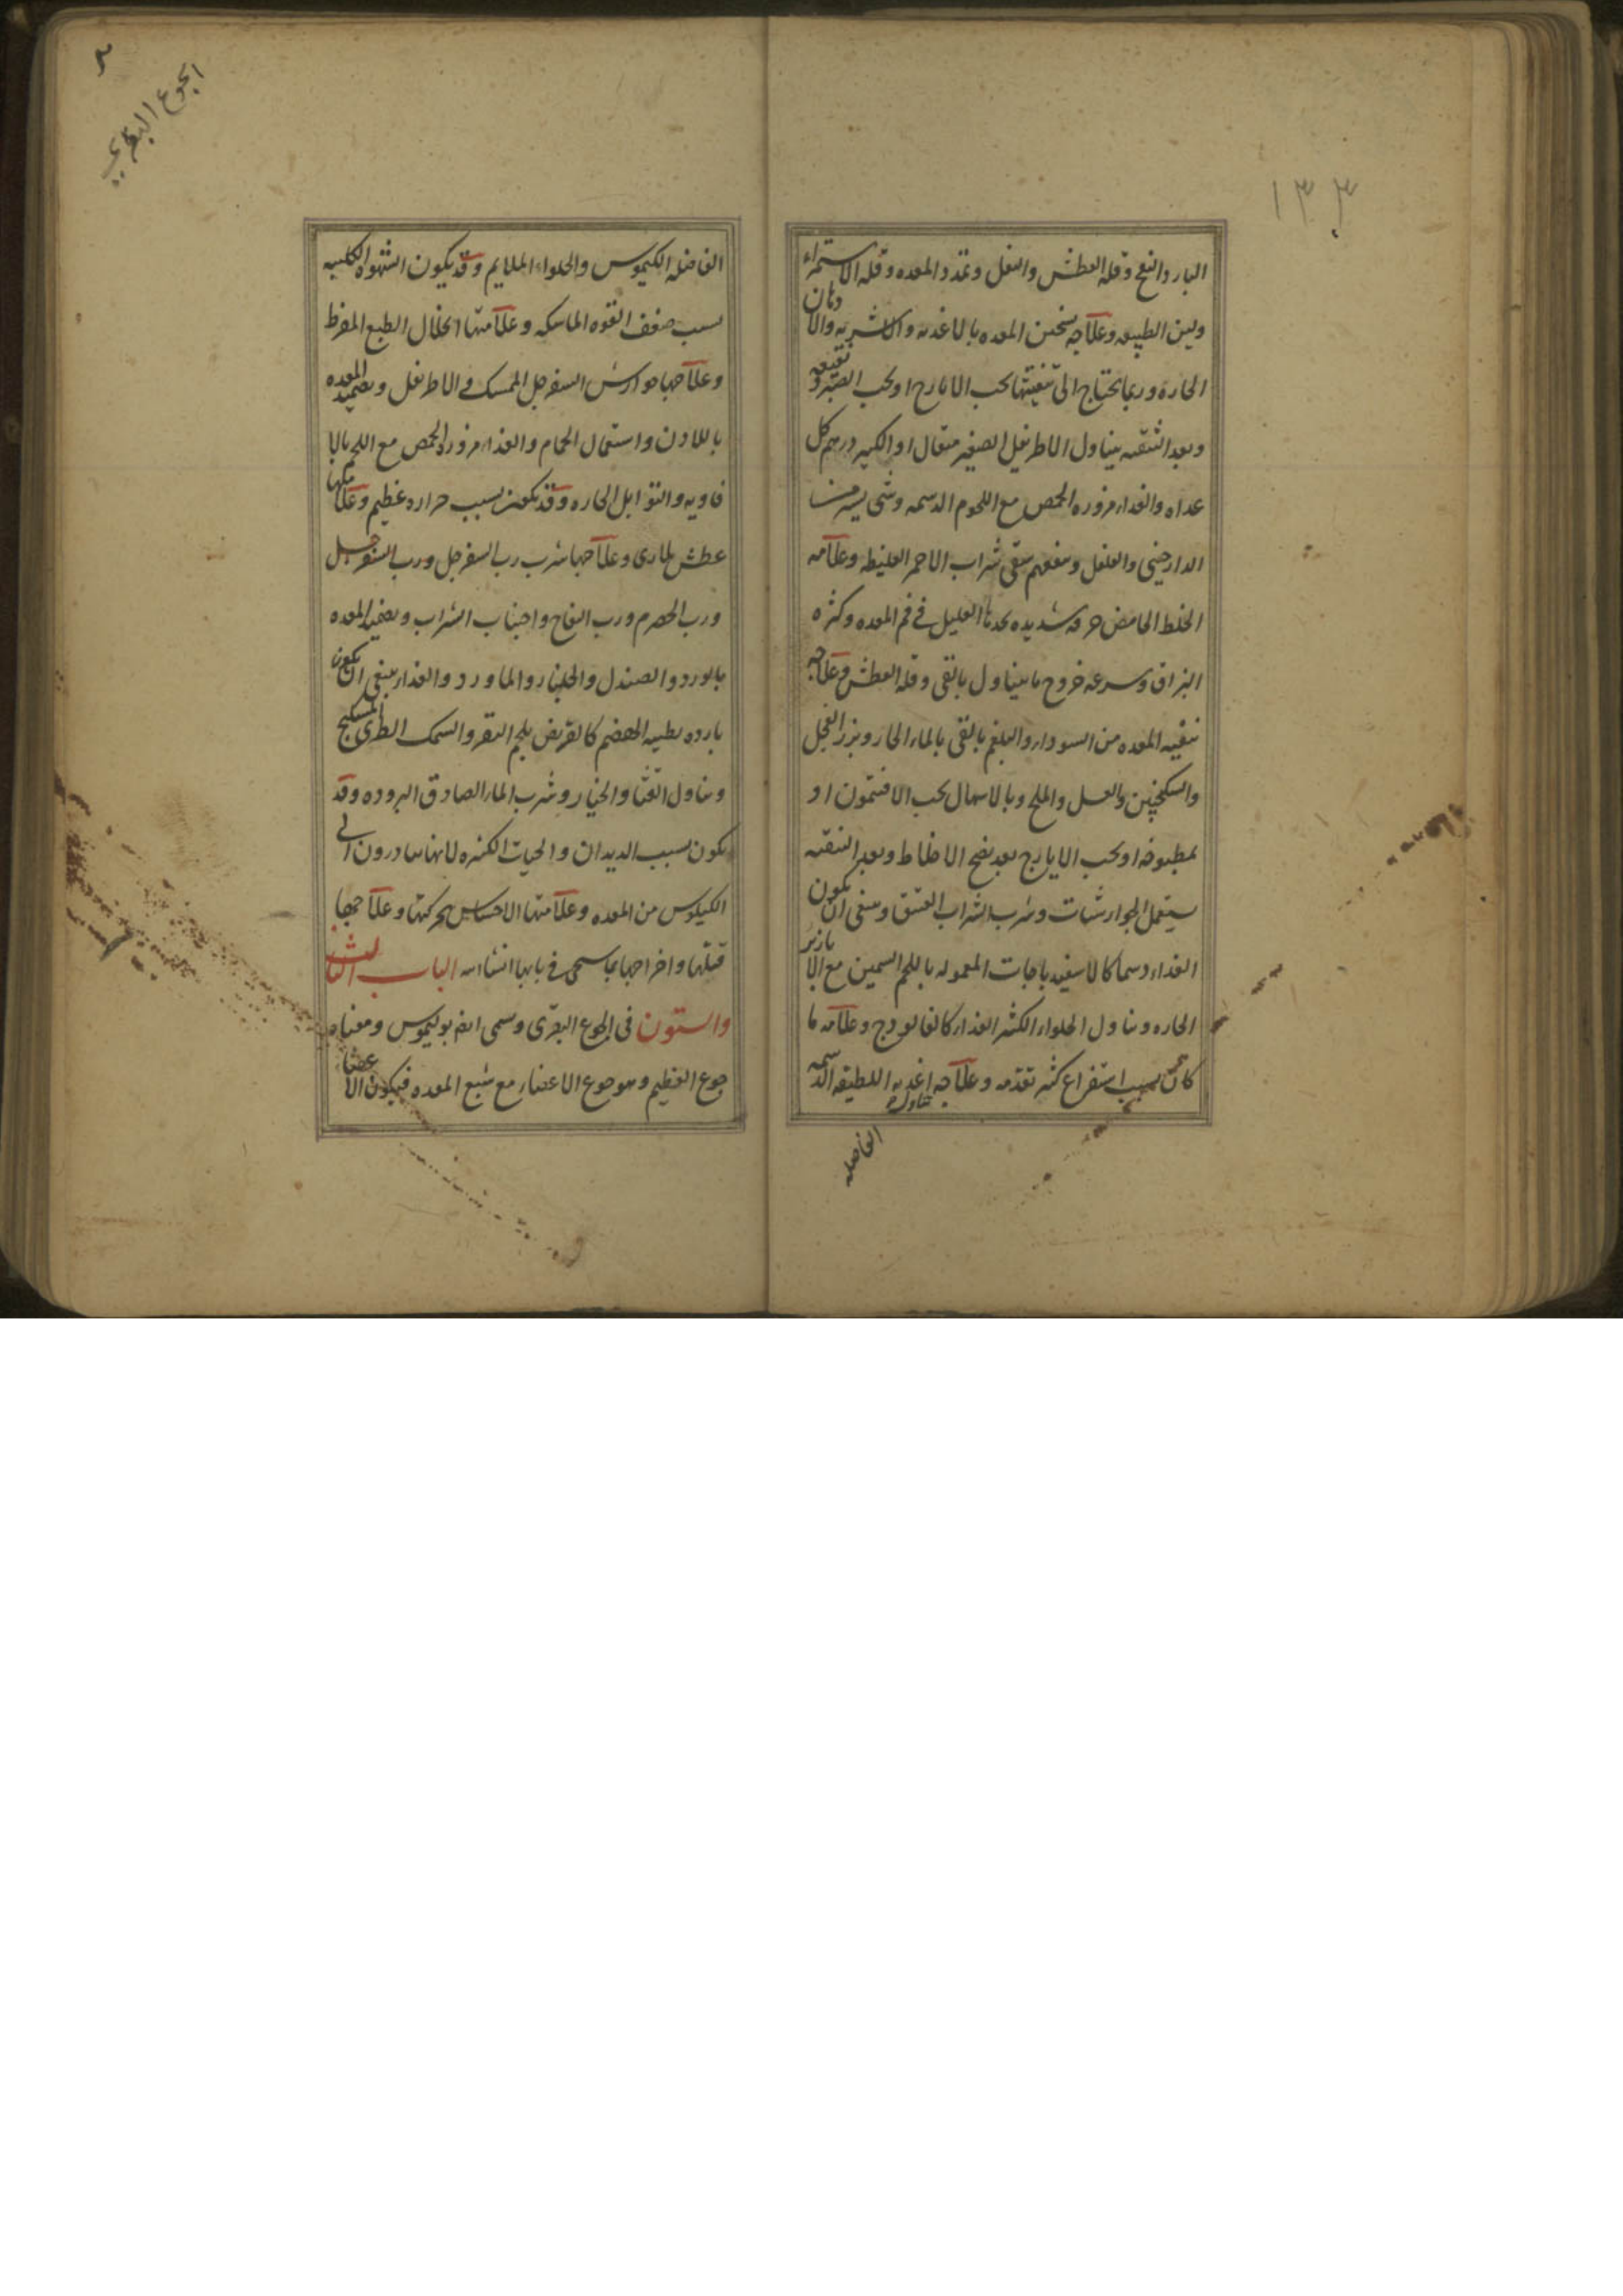 ١٣٣
البارد النفخ وقله العطش والثقل وتمدد المعده وقله الاستمراء
ولين الطبيعه وعلاجه تسخين المعده بالاغذيه والاشربه والادهان
الحاره وربما يحتاج الى تنقيتها بحب الايارج او بحب الصبر ونقيعه
وبعد التنقيه يتناول الاطريفل الصغير مثقال او الكبير درهم كل
غداه والغداء مزوره الحمص مع اللحوم الدسمه وشى يسير من
الدارجينى والفلفل وينفعهم سقى شراب الاحمر الغليظه وعلامه
الخلط الحامض حرقه شديده يجدها العليل في فم المعده وكثره
البزاق وسرعه خروج ما يتناول بالقى وقله العطش وعلاجه
تنقيه المعده من السوداء والبلغم بالقى بالماء الحار وبزر الفجل
والسكنجبين والعسل والملح وبالاسهال بحب الافتيمون او
بمطبوخه او بحب الايارج بعد نضج الاخلاط وبعد التنقيه
يستعمل الجوارشنات وشرب الشراب العتيق وينبغى ان يكون
الغداء دسما كالاسفيدباجات المعموله باللحم السمين مع الابازير
الحاره وتناول الحلواء الكثير الغداء كالفالوذج وعلامه ما
كان بسبب استفراغ كثير تقدمه وعلاجه تناول اغذيه اللطيفه الدسمه
الفاضله
الجوع البقرى
الفاضله الكيموس والحلواء الملايم وقد يكون الشهوه الكلبيه
بسبب ضعف القوه الماسكه وعلامتها انحلال الطبع المفرط
وعلاجها جوارش السفرجل الممسك والاطريفل وتضميد المعده
باللادن واستعمال الحمام والغداء مزوره الحمص مع اللحم بالا
فاويه والتوابل الحاره وقد يكون بسبب حراره عظيم وعلامتها
عطش طارى وعلاجها شرب رب السفرجل ورب السفرجل
ورب الحصرم ورب التفاح واجتناب الشراب وتضميد المعده
بالورد والصندل والجلنار والماورد والغداء ينبغى ان يكون
بارده بطيه الهضم كالقريض بلحم البقر والسمك الطرى المسكبج
وتناول القثاء والخيار وشرب الماء الصادق البروده وقد
يكون بسبب الديدان والحيات الكثيره لانها يبادرون الى
الكيلوس من المعده وعلامتها الاحساس بحركتها وعلاجها
قتلها واخراجها بما سيجى في بابها انشاالله الباب الثالث
والستون فى الجوع البقرى ويسمى ايضا بوليموس ومعناه
جوع العظيم وهو جوع الاعضاء مع شبع المعده فيكون الاعضا